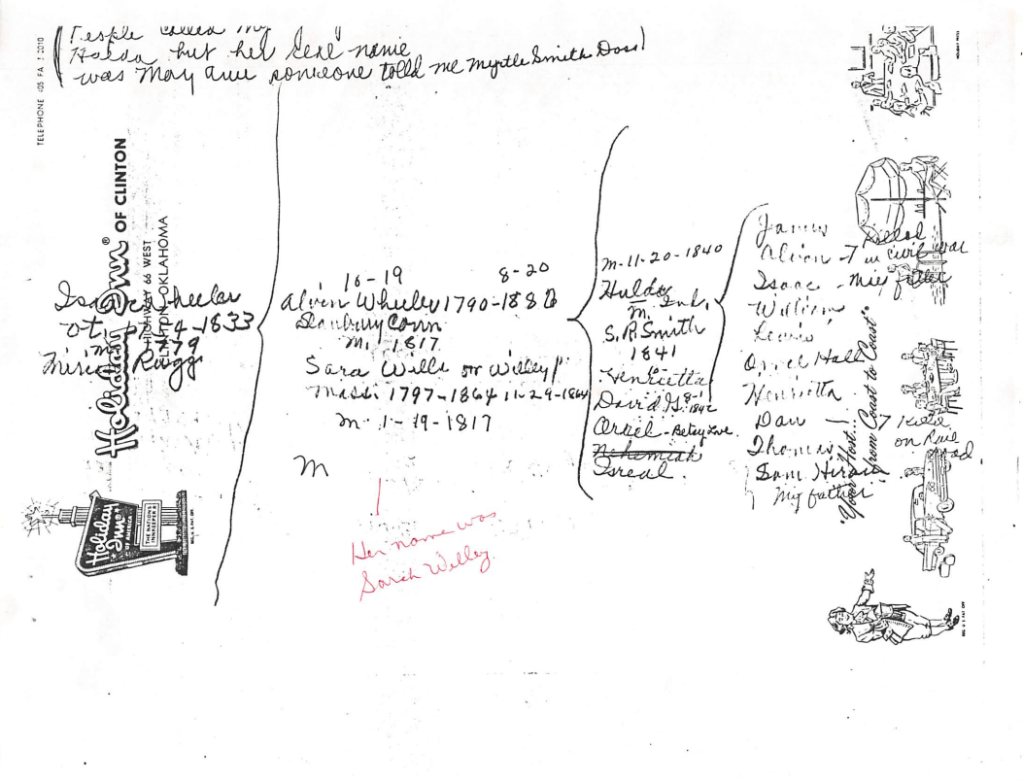 People called my
Hulda but her real name
was Mary Ann someone told me Myrtle Smith Doss
TELEPHONE
Holiday Inn® OF CLINTON
HIGHWAY 66 WEST
CLINTON, OKLAHOMA
Isaac Wheeler
-1833
m 1779
Ruggs
10-19 8-20
Alvin Wheeley 1790-1880
Danbury Conn
m. 1817
Sara Wille or Willey
Mass. 1797-1864 11-29-1864
m. 1-19-1817
M
Her name was
Sarah Willey
m-11-20-1840
Hulda Ind.
m.
S. R. Smith
1841
Henrietta
David G. 8-1 1842
Orrel - Betsy Love
Nehemiah
Isreal.
James
Alvin - 7 killed in civil war
Isaac -
William
Lewis
Orrel Hall
Henrietta
Dan - 7 killed on Rail road
Thomas
Sam Hiram
My father
"Your Host... from Coast to Coast"
Holiday Inn
OF AMERICA
THE NATION'S INNKEEPER